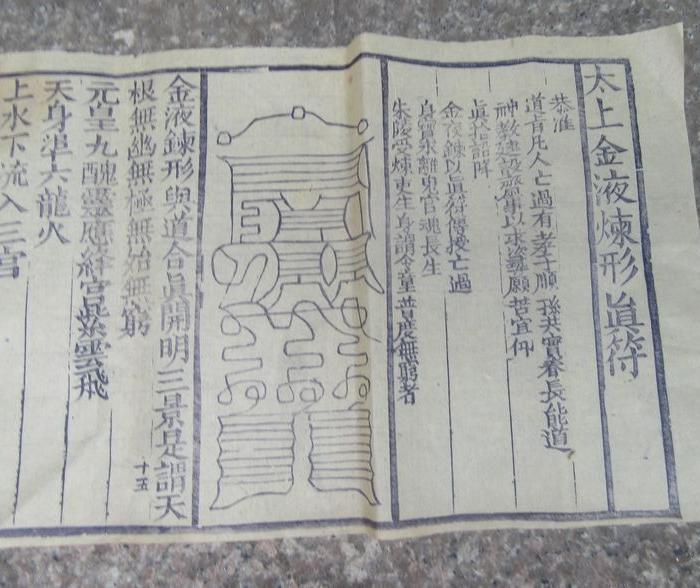 太上金液煉形真符
恭准
道旨凡人亡過有孝子順孫共寶眷長能道
神教建設以求濟願苦宜仰
真符詔降
金液鍊以真符傳授亡過
身質來離鬼官魂長生
朱陵受煉更生身謂今童普度無窮者
金液鍊形與道合真開明三景是謂天
根無幽無極無始無窮
十五
元皇九醜靈應絳宮紫雲飛
天身準六龍火
上水下流入三官